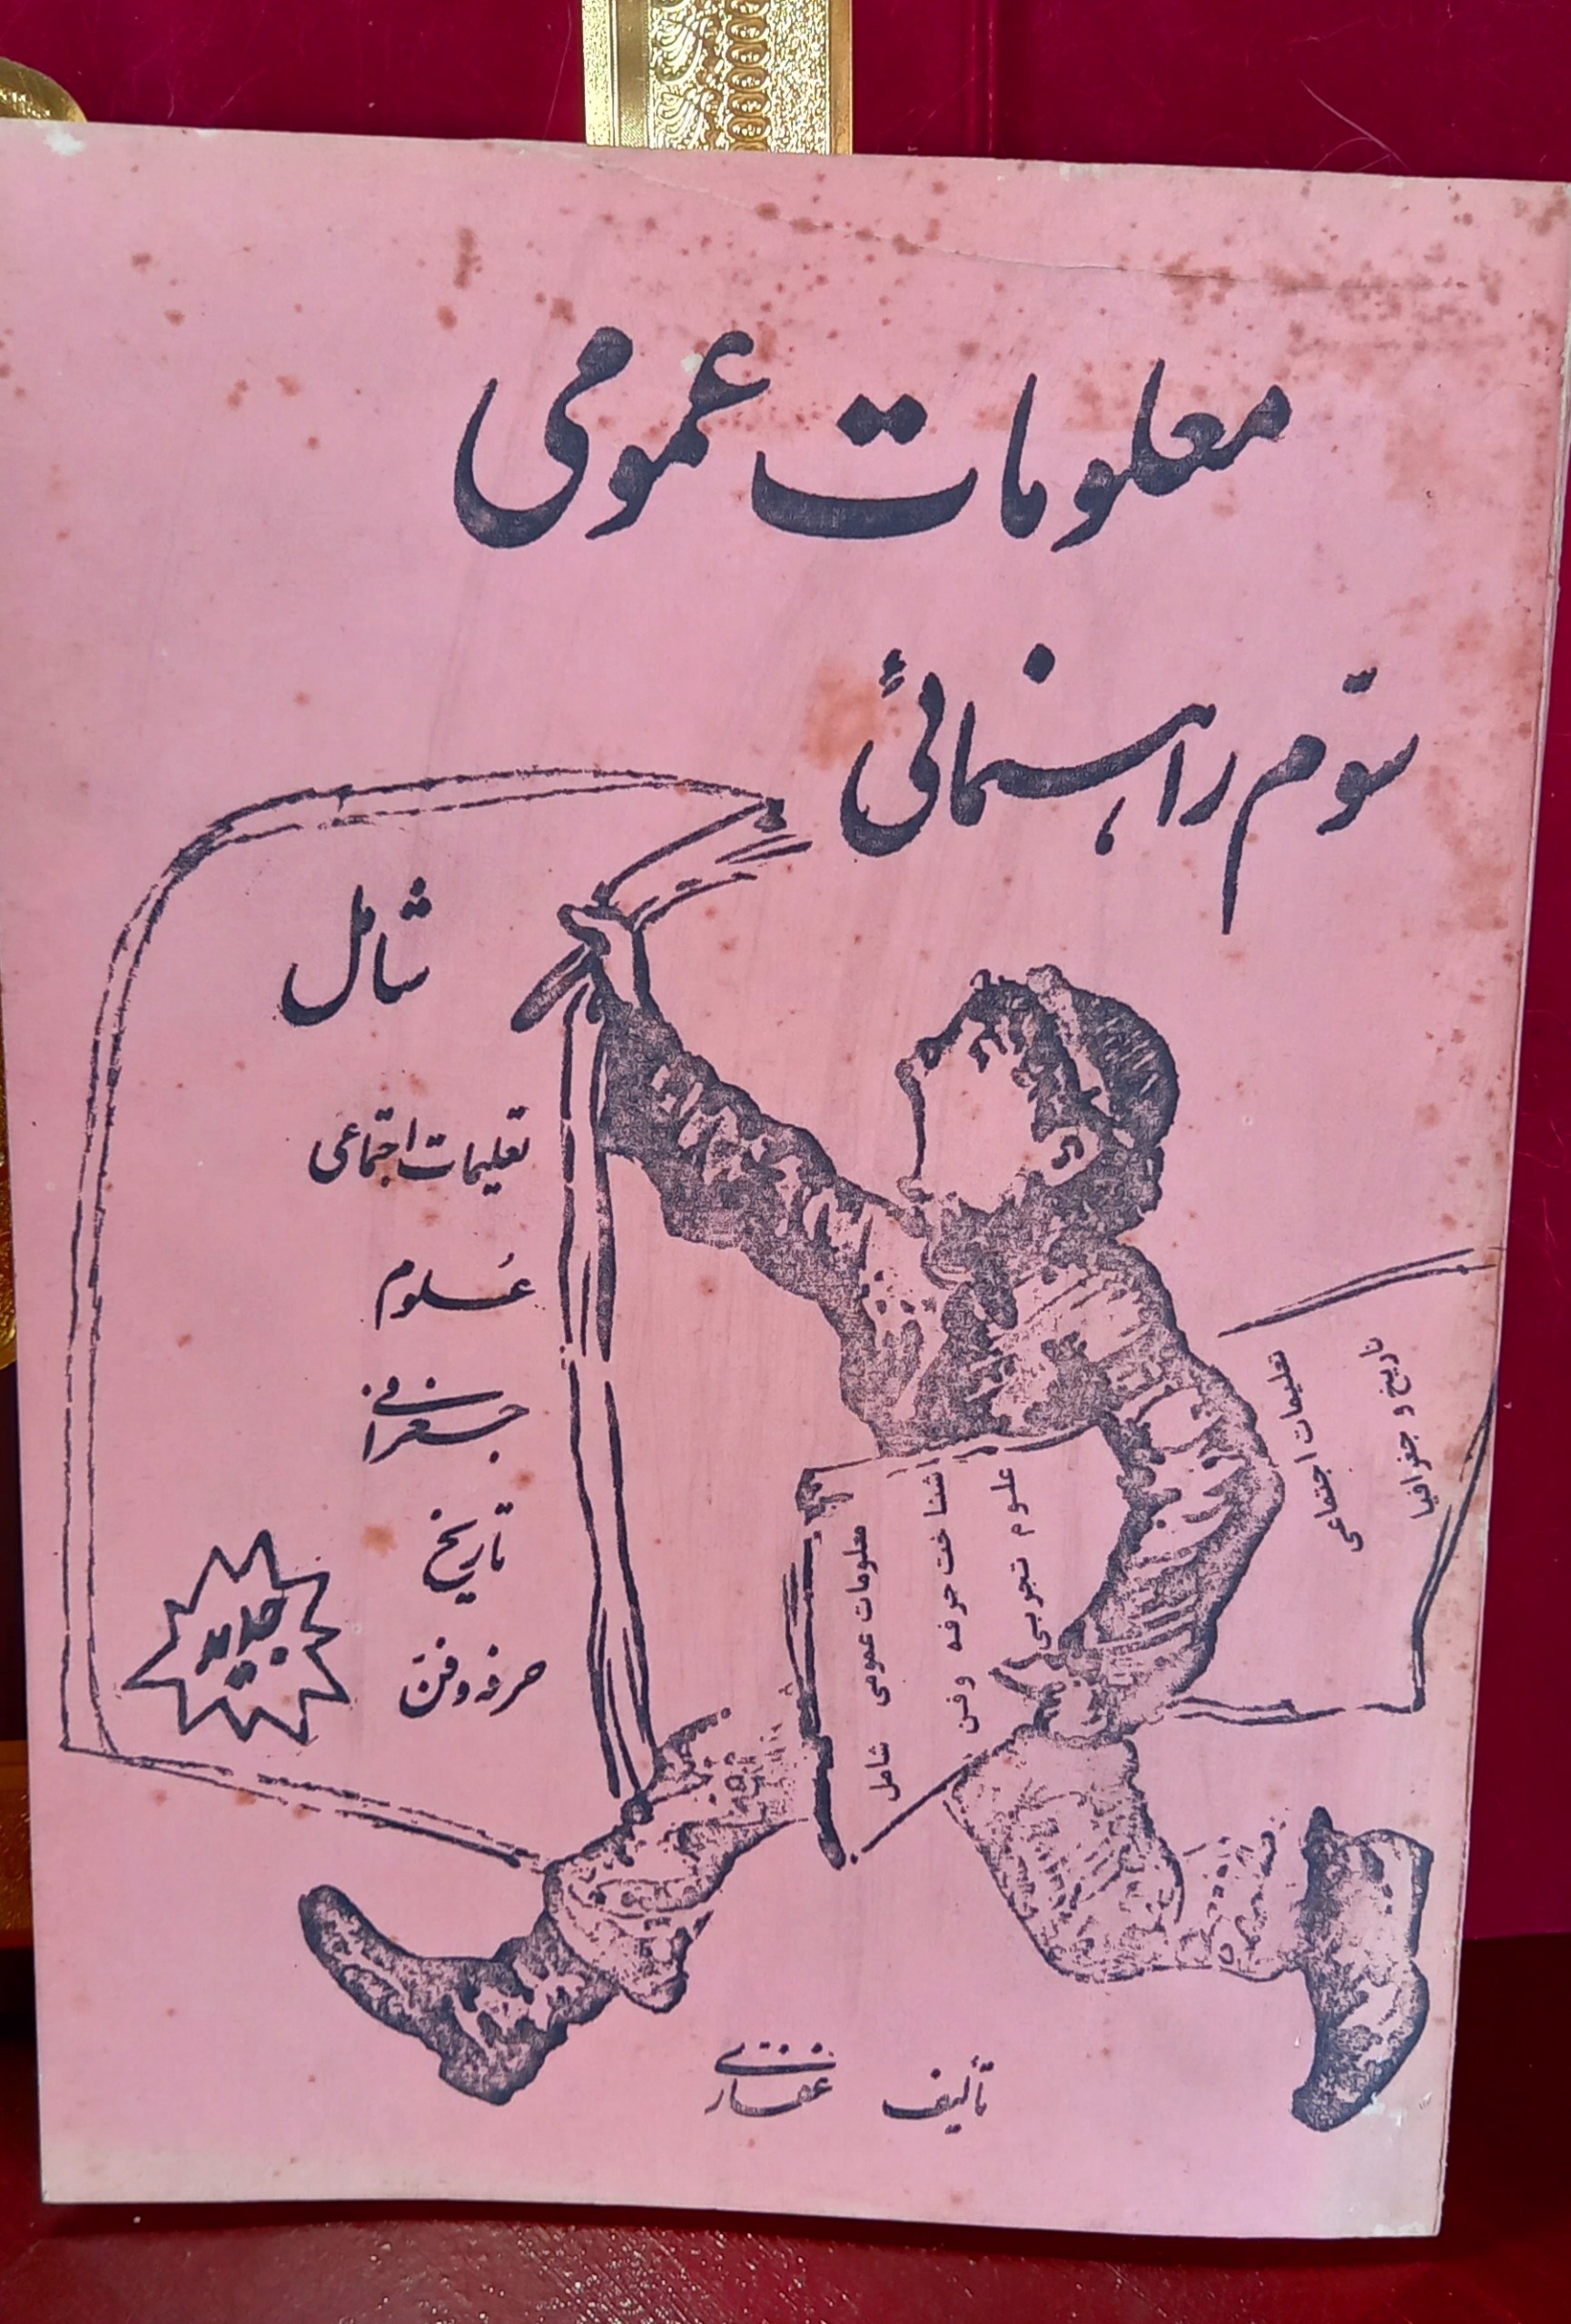 معلومات عمومی
سوّم راهنمائی
شامل
تعلیمات اجتماعی
عُلوم
جغرافی
تاریخ
حرفه و فن
جدید
علوم تجربی
شناخت حرفه و فن
معلومات عمومی شامل
تاریخ و جغرافیا
تعلیمات اجتماعی
تألیف غفاری